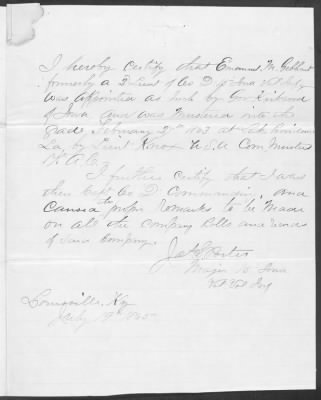 I hereby certify that Emanuel M. Gebhart
formerly a 2 Lieut of Co D 15 Iowa Vol Infy
was appointed as such by Gov Kirkwood
of Iowa and was Mustered into the
grade February 2nd 1863 at Lake Providence
La, by Lieut Knox U.S.A Com Musters
17 A.C.
I further certify that I was
then Capt Co D Commanding, and
Caused the proper remarks to be made
on all the company Rolls and records
of said Company,
Jas S Porter
Major 15 Iowa
Vet Vol Inf
Louisville, Ky
July 19th 1865